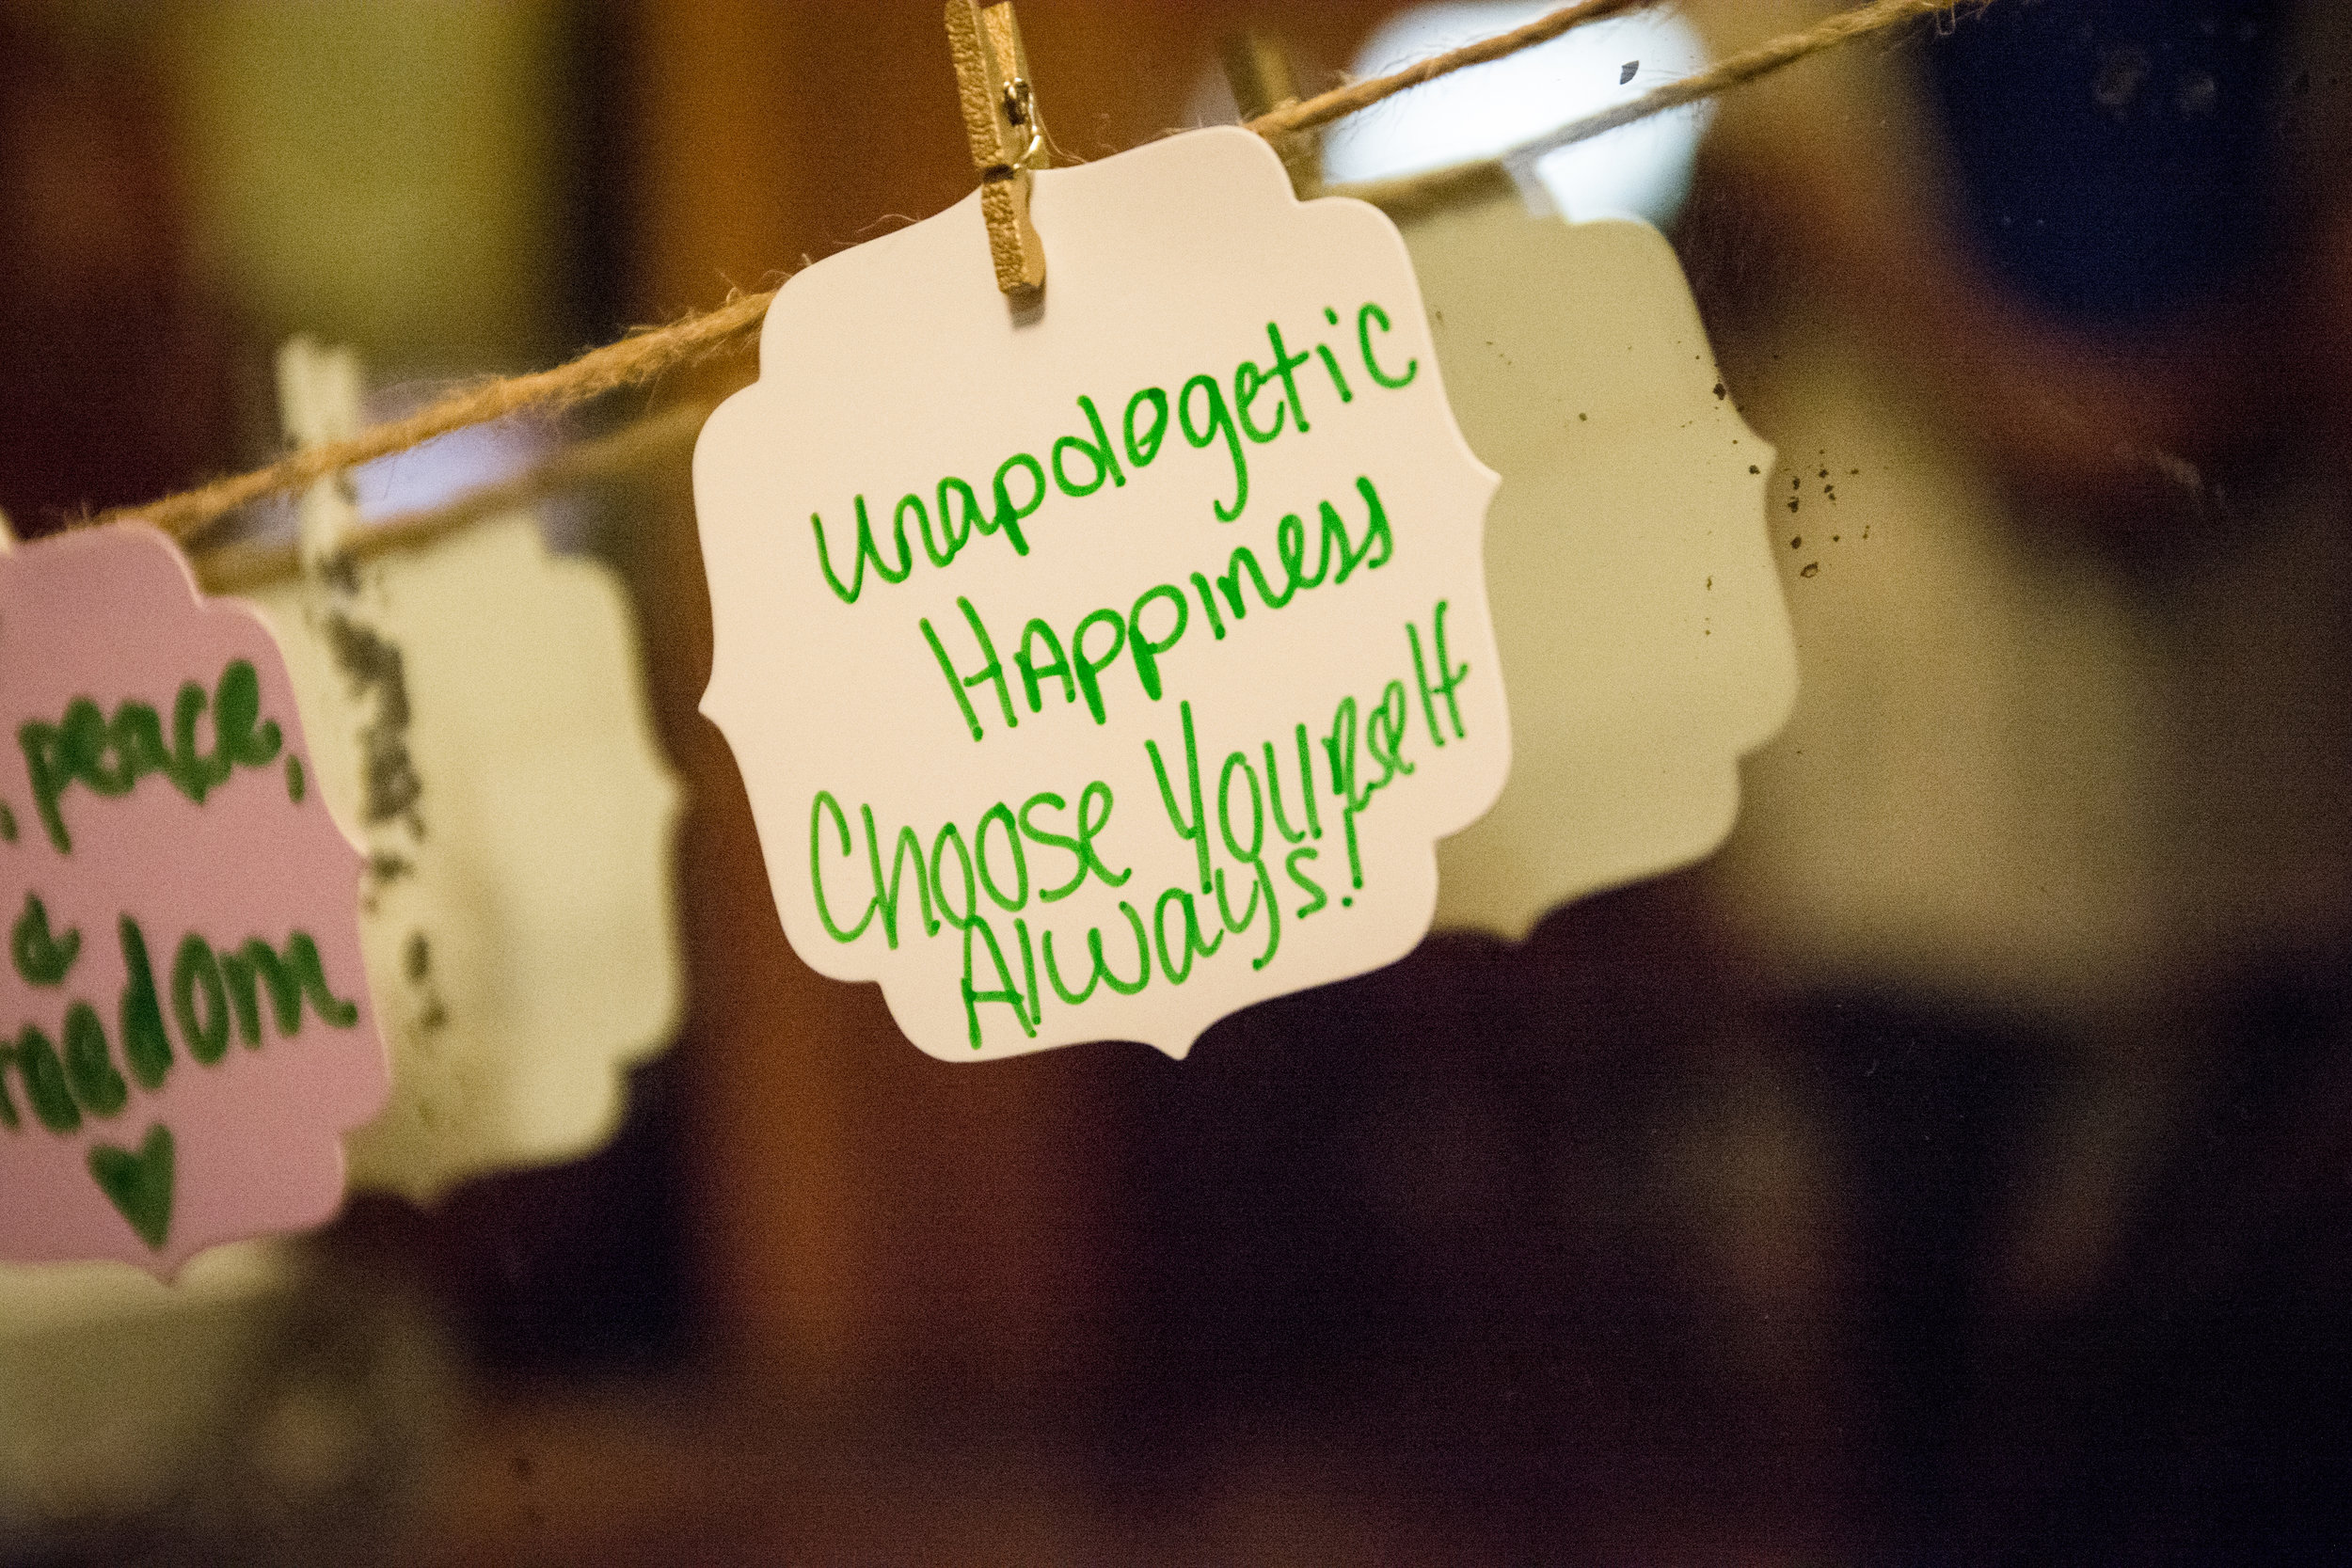 , peace,
&
freedom
Unapologetic
Happiness
Choose Yourself
Always!